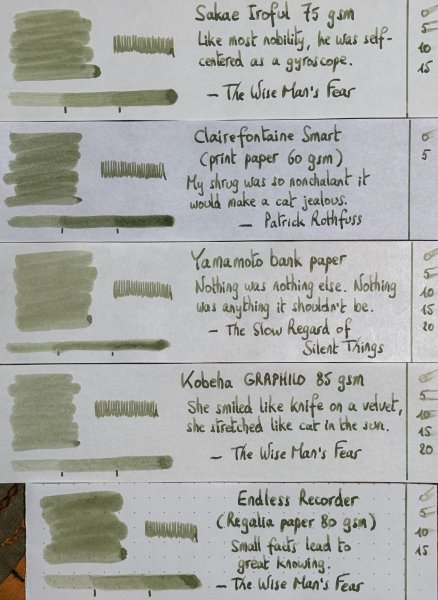 Sakae Iroful 75 gsm
Like most nobility, he was self-
centered as a gyroscope.
– The Wise Man's Fear
0
5
10
15
Clairefontaine Smart
(print paper 60 gsm)
My shrug was so nonchalant it
would make a cat jealous.
– Patrick Rothfuss
0
5
Yamamoto bank paper
Nothing was nothing else. Nothing
was anything it shouldn't be.
– The Slow Regard of
Silent Things
0
5
10
15
20
Kobeha GRAPHILO 85 gsm
She smiled like knife on a velvet,
she stretched like cat in the sun.
– The Wise Man's Fear
0
5
10
15
20
Endless Recorder
(Regalia paper 80 gsm)
Small facts lead to
great knowing.
– The Wise Man's Fear
0
5
10
15